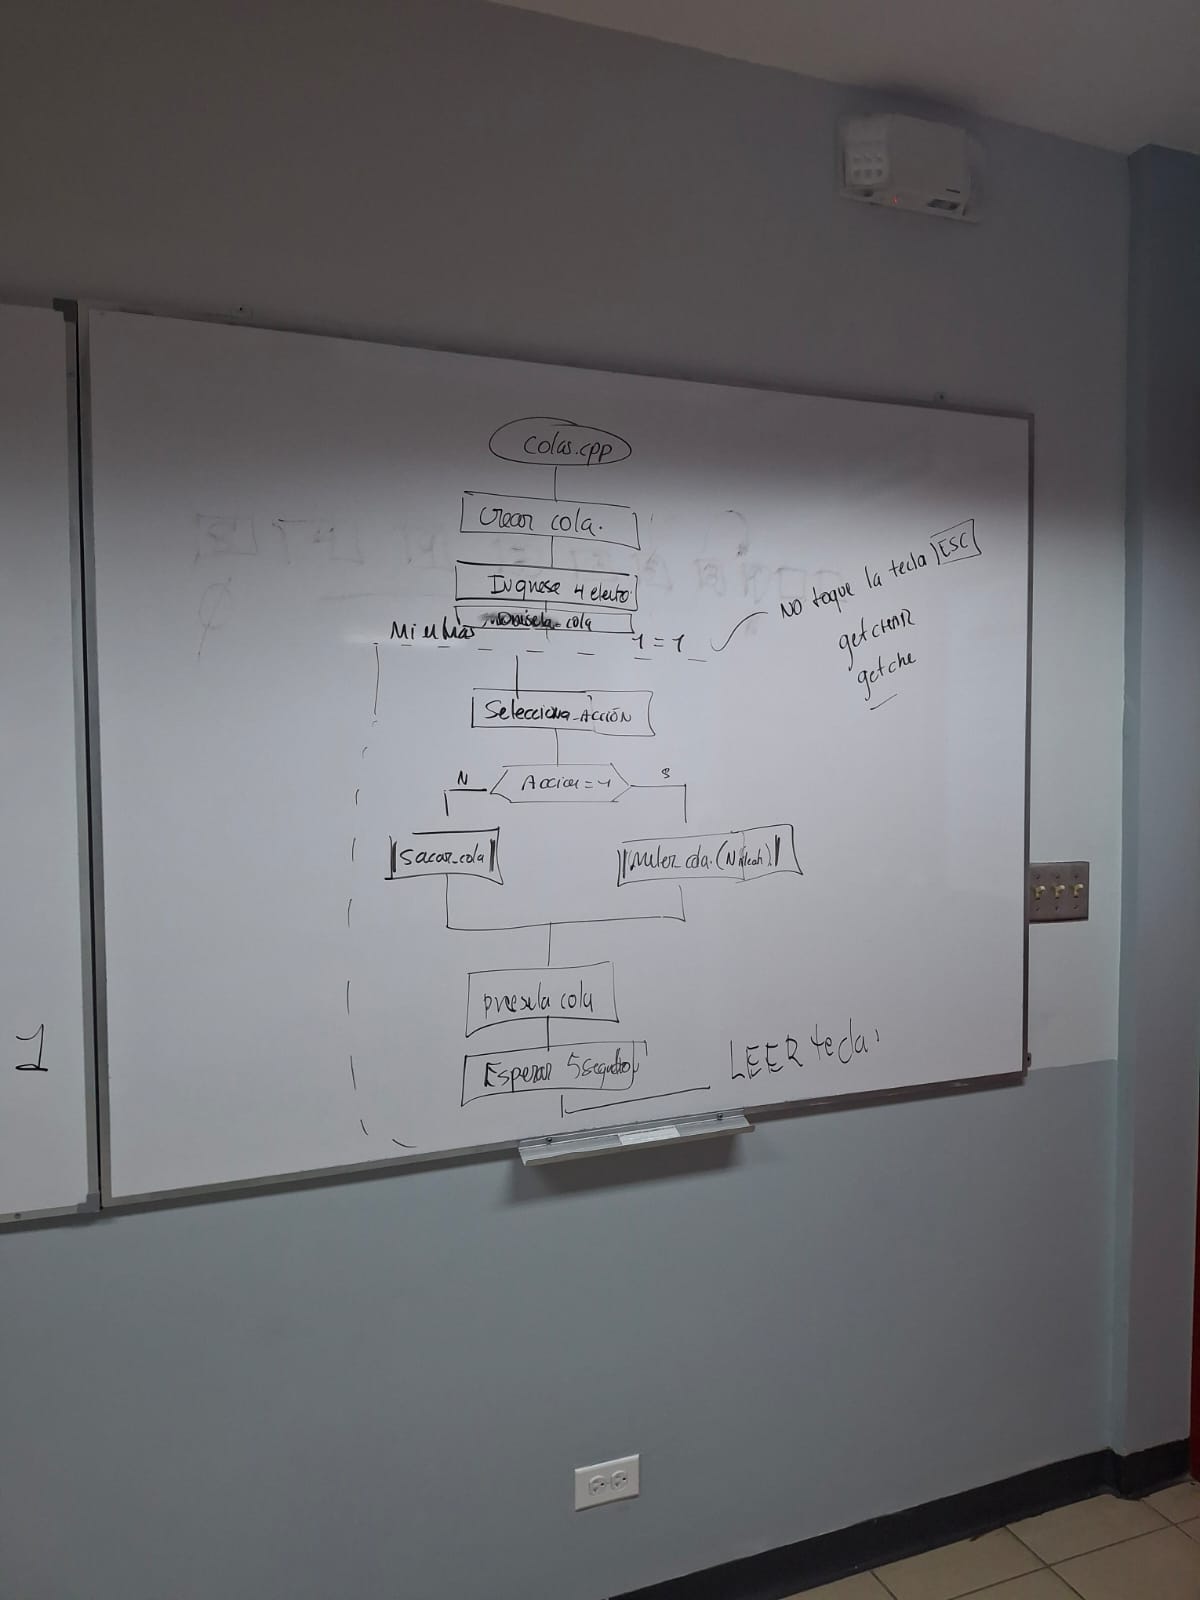 colas.cpp
Crear cola.
Ingrese 4 eleto.
cola
Mientras 1=1
NO toque la tecla ESC
getCHAR
getche
Selecciona_ACCIÓN
N Accion=1 S
Sacar_cola
Meter_cola.(N
cola
Esperar 5 segundo
LEER tecla.
1